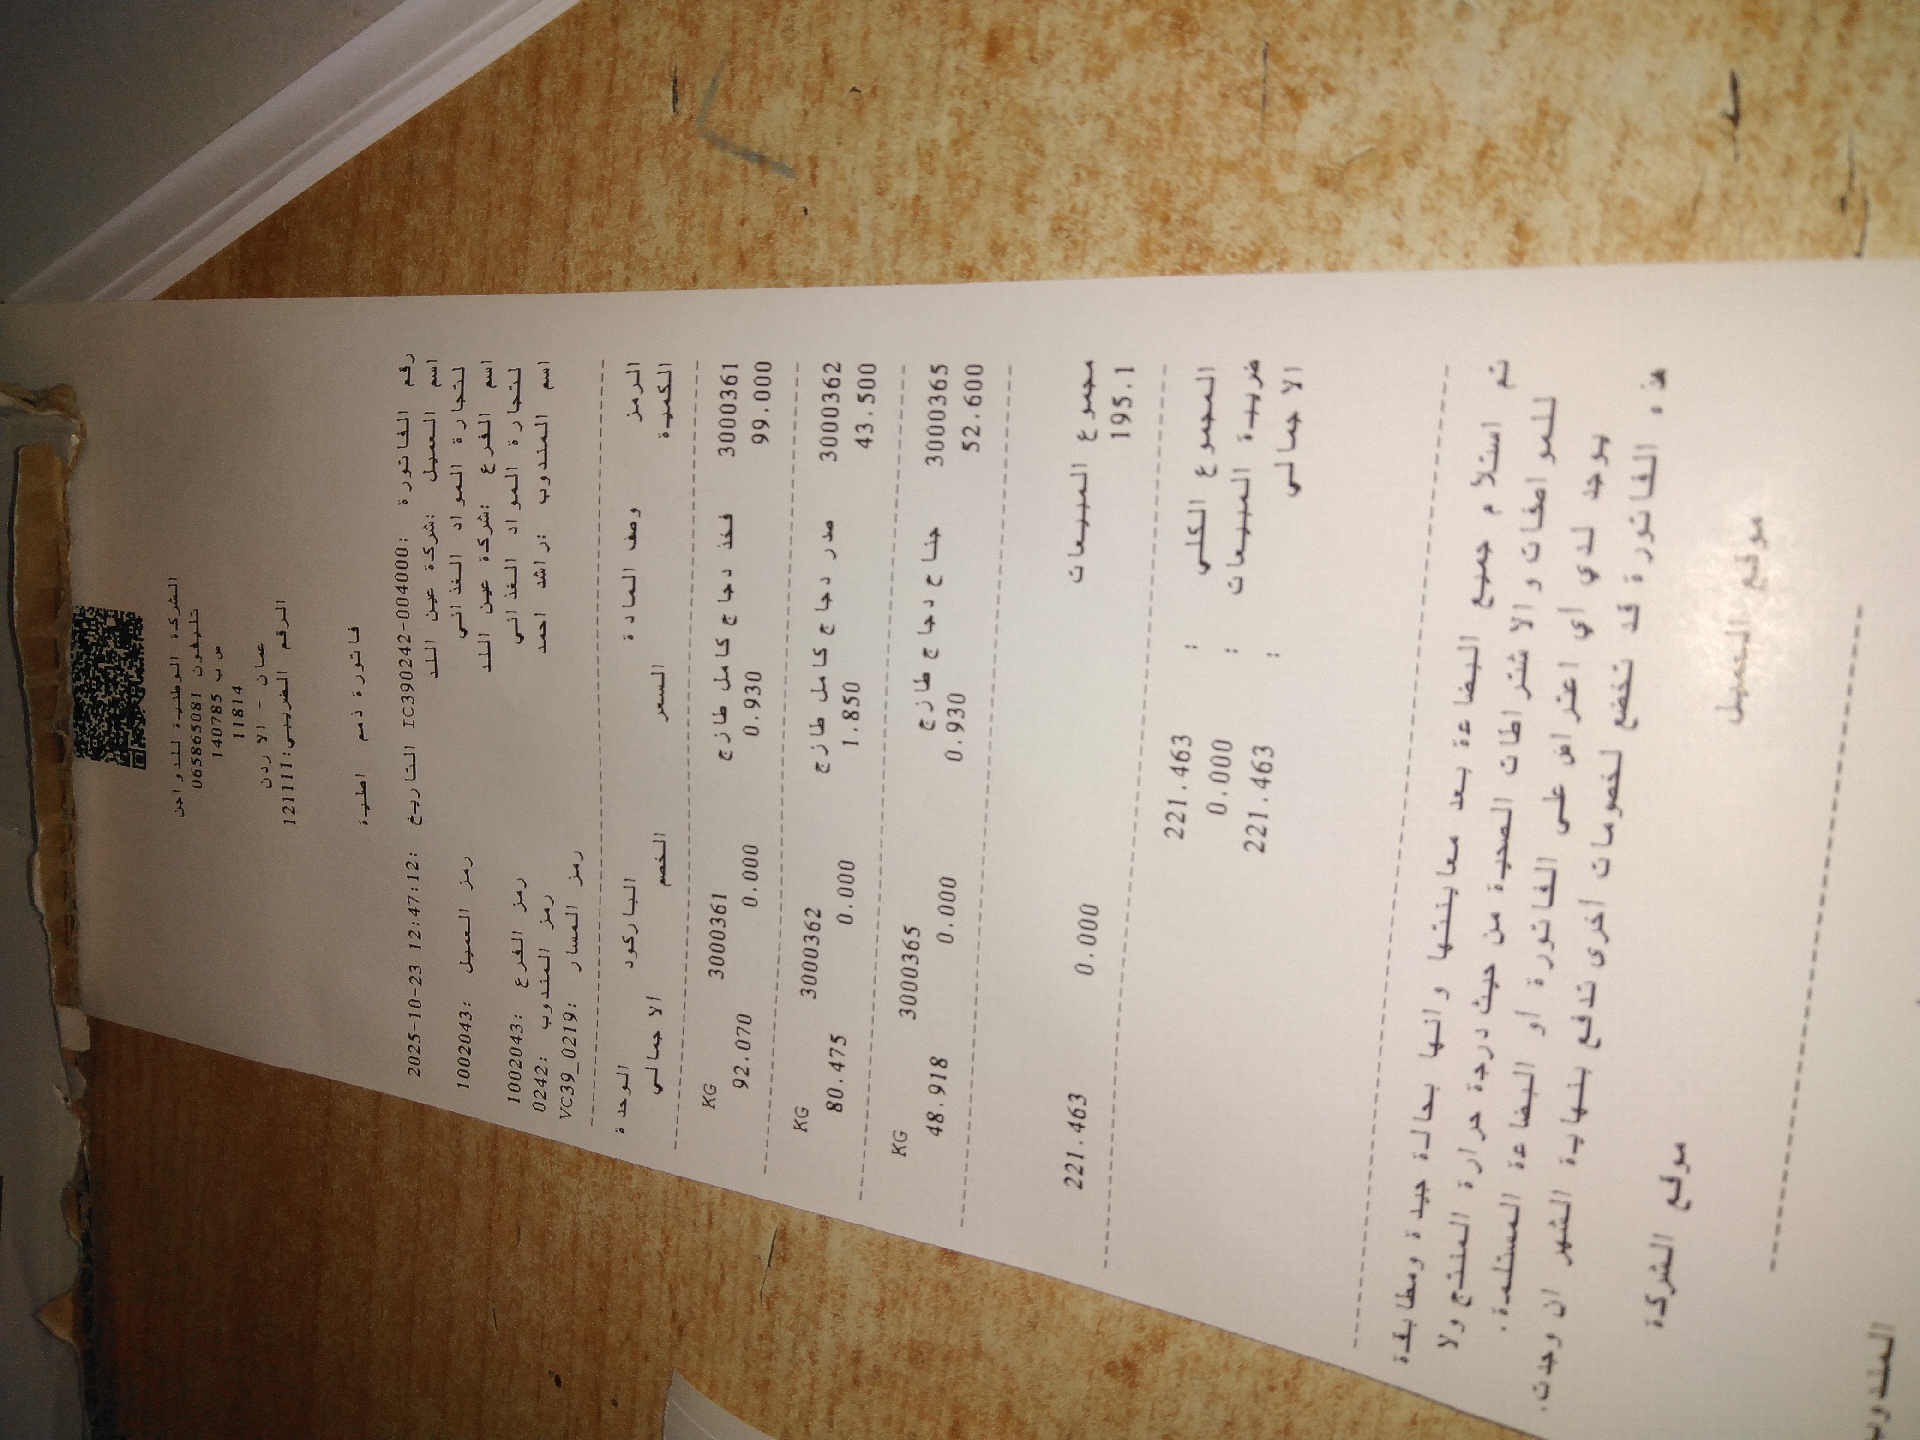 الشركة الوطنية للدواجن
تليفون 065865081
ص ب 140785
11814
عمان - الاردن
الرقم الضريبي:121111
فاتورة ذمم اصلية
رقم الفاتورة :IC390242-004000 التاريخ :2025-10-23 12:47:12
اسم العميل :شركة عين اللد
لتجارة المواد الغذائي رمز العميل :1002043
اسم الفرع :شركة عين اللد
لتجارة المواد الغذائي رمز الفرع :1002043
اسم المندوب :راشد احمد رمز المندوب :0242
رمز المسار :VC39_0219
الرمز وصف المادة الباركود الوحدة
الكمية السعر الخصم الاجمالي
3000361 فخذ دجاج كامل طازج 3000361 KG
99.000 0.930 0.000 92.070
3000362 صدر دجاج كامل طازج 3000362 KG
43.500 1.850 0.000 80.475
3000365 جناح دجاج طازج 3000365 KG
52.600 0.930 0.000 48.918
مجموع المبيعات 0.000 221.463
195.1
المجموع الكلي : 221.463
ضريبة المبيعات : 0.000
الاجمالي : 221.463
تم استلام جميع البضاعة بعد معاينتها وانها بحالة جيدة ومطابقة
للمواصفات والاشتراطات الصحية من حيث درجة حرارة المنتج ولا
يوجد لدي أي اعتراض على الفاتورة أو البضاعة المستلمة.
هذه الفاتورة قد تخضع لخصومات أخرى تدفع بنهاية الشهر ان وجدت.
موقع العميل موقع الشركة
المندوب